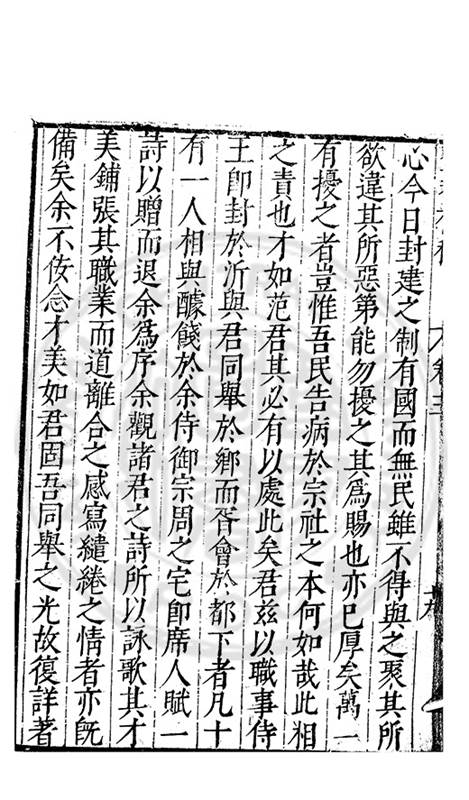 心今日封建之制有國而無民雖不得與之聚其所
欲違其所惡第能勿擾之其爲賜也亦已厚矣萬一
有擾之者豈惟吾民告病於宗社之本何如哉此相
之責也才如范君其必有以處此矣君茲以職事侍
王卽封於沂與君同舉於鄉而胥會於都下者凡十
有一人相與醵餞於余侍御宗周之宅卽席人賦一
詩以贈而退余爲序余觀諸君之詩所以詠歌其才
美鋪張其職業而道離合之感寫繾綣之情者亦旣
備矣余不佞念才美如君固吾同舉之光故復詳著